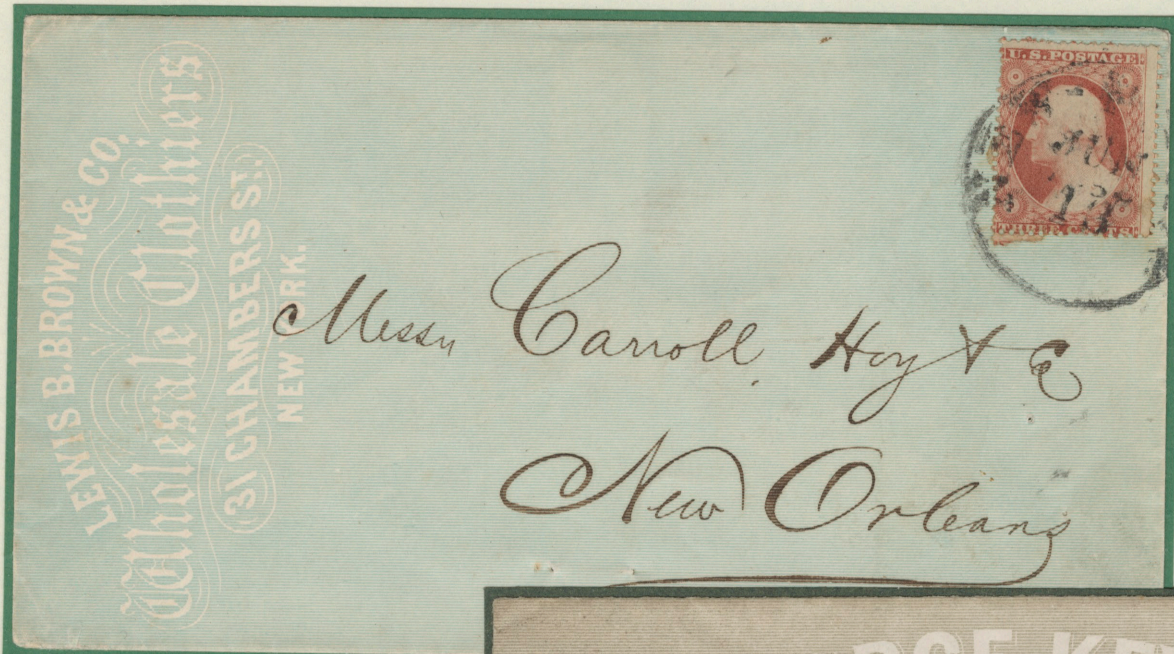 LEWIS B. BROWN & CO.
Wholesale Clothiers
31 CHAMBERS ST.
NEW YORK.
U.S. POSTAGE
THREE CENTS
Messrs Carroll, Hoy & Co
New Orleans